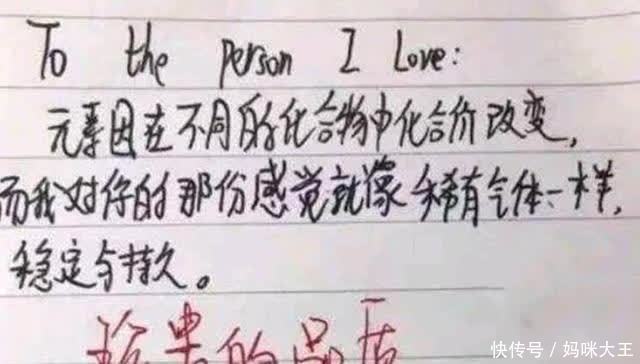 To the person I Love:
元素因在不同的化合物中化合价改变，
而我对你的那份感觉就像稀有气体一样，
稳定与持久。
珍贵的品质
快传号／妈咪大王